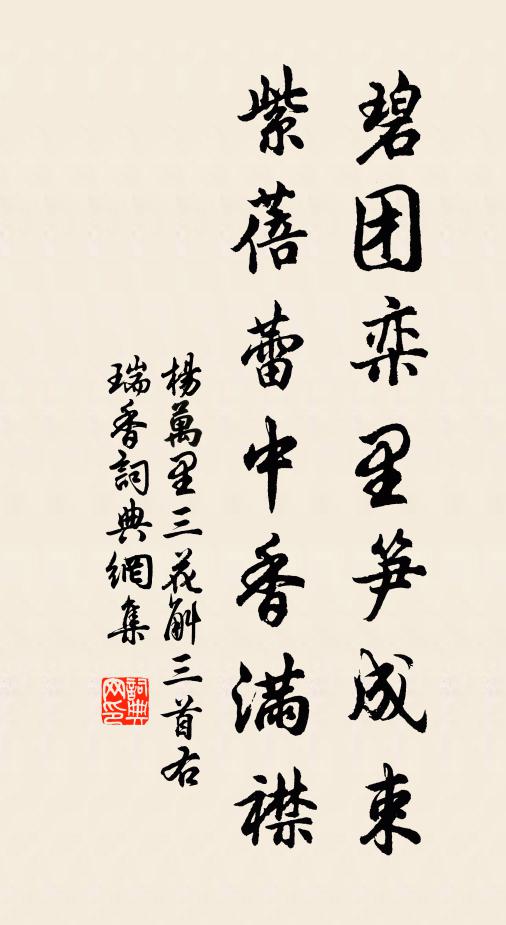 碧团栾里笋成束
紫蓓蕾中香满襟
楊萬里三花斛三首右
瑞香詞典網集
詞典网印